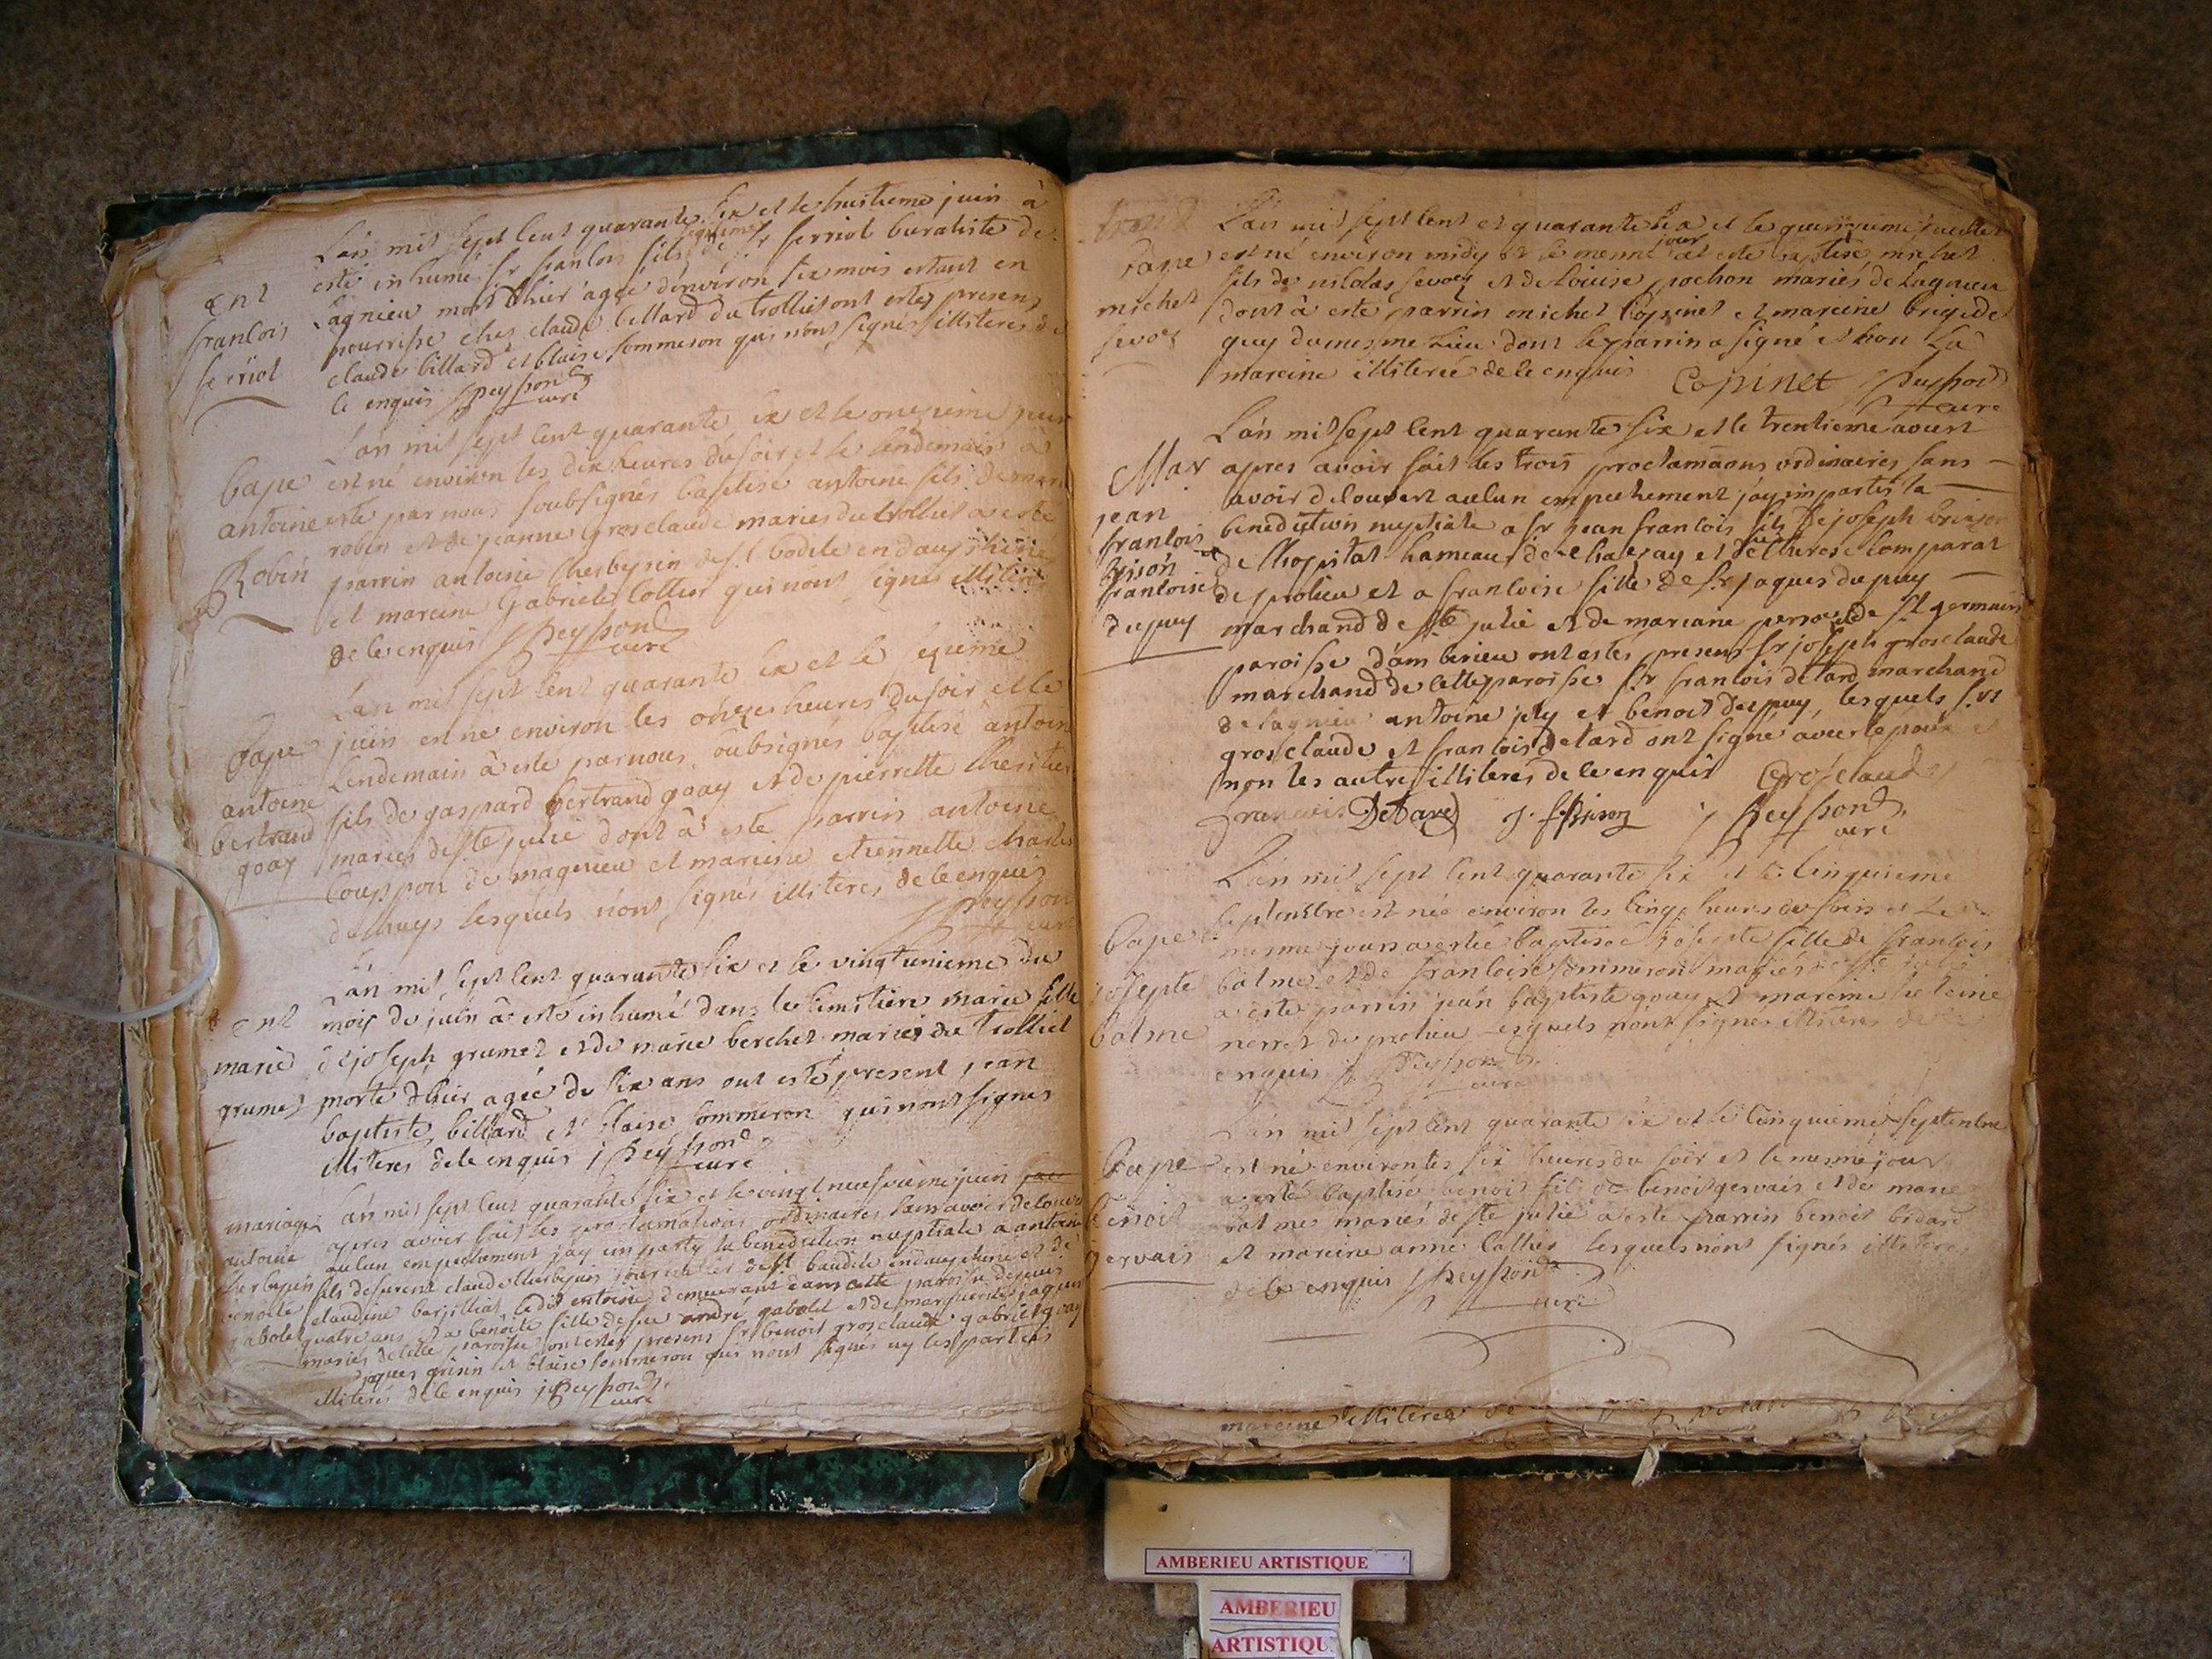 L'an mil sept cent quarante six et le huitieme juin à
esté inhumé sr francois fils legitime de sr ferriol buraliste de
ent
lagnieu mort d'hier agée denviron six mois estant en
francois
nourrisse ches claude billard du trolliet ont estes presens
ferriol
claude billard et blaise sommeron qui nont signés illiteres de
ce enquis j Peysson curé
L'an mil sept cent quarante six et le onzieme juin
bape
est né environ les dix heures du soir et le lendemain à
antoine
esté par nous soubsignés baptisé antoine fils de
Robin
robin et de jeanne grosclaude maries du trolliet a esté
parrin antoine cherbesin de st bodile en dauphiné
et mareine Gabriele Collier qui nont signés illiteres
de ce enquis j Peysson curé
L'an mil sept cent quarante six et le
bape
juin est né environ les onze heures du soir et le
antoine
lendemain à esté par nous soubsignés baptisé antoine
bertrand
fils de gaspard bertrand goay et de pierrette
goay
maries de ste julie dont à esté parrin antoine
Couppon de et mareine etiennette charles
lesquels nont signés illiteres de ce enquis
j Peysson curé
L'an mil sept cent quarante six et le vingtunieme du
ent
mois de juin à esté inhumé dans le cimetiere marie fille
marie
de joseph grumet et de marie berchet maries du trolliet
grumet
morte d'hier agée de six ans ont esté present jean
baptiste billard et blaise sommeron qui nont signes
illiteres de ce enquis j Peysson curé
L'an mil sept cent quarante six et le vingt neufvieme juin
mariage
apres avoir fait les proclamations ordinaires sans avoir decouvert
antoine
aulcun empechement jay imparty la benediction nuptiale a antoine
cherbesin
fils de furent claude cherbesin journalier de st baudile en dauphiné et de
benoite
claudine barjilliat, ledit antoine demeurant dans cette paroisse depuis
gabolet
quatre ans et a benoite fille de feu andré gabolet et de marguerite jaques
maries de cette paroisse ont estes presens sr benoit grosclaude gabriel goay
jaques grisin et blaise sommeron qui nont signés ny les parties
illiteres de ce enquis j Peysson curé
L'an mil sept cent et quarante six et le juillet
bape
est né environ midy et le meme jour at esté baptisé michel
michel
fils de nicolas sevoz et de louise pochon mariés de Lagnieu
sevoz
dont à esté parrin michel Copinet et mareine brigide
guy du mesme Lieu dont le parrin a signé et non La
mareine illiterée de ce enquis Copinet j Peysson curé
L'an mil sept cent quarante six et le trentieme aoust
Mar
apres avoir fait les trois proclamaons ordinaires sans
avoir decouvert aulcun empechement jay impartis la
jean
benediction nuptiale a sr jean francois fils de joseph brison
francois
de lhopital hameau de chazay et de therese Comparat
brison
et
francoise
de prolieu et a francoise fille de sr jaques dupuy
dupuy
marchand de ste julie et de mariane de st germain
paroisse d'amberieu ont estes presens sr joseph grosclaude
marchand de cette paroisse sr francois detard marchand
de lagnieu antoine joly et benoit dupuy, lesquels srs
grosclaude et francois detard ont signé avec lepoux et
non les autres illiterés de ce enquis Grosclaude
francois Detard j. f Brison j Peysson curé
L'an mil sept cent quarante six et le cinquieme
septembre est née environ les cinq heures du soir et le
bape
mesme jours a estée baptisée josepte fille de francois
josepte
balme et de francoise sommeron mariés de ste julie
balme
a esté parrin jean baptiste goay et mareine
de prolieu lesquels nont signés illiteres de ce
enquis j Peysson curé
L'an mil sept cent quarante six et le cinquieme septembre
bape
est né environ les six heures du soir et le mesme jour
a esté baptisé benoit fils de benoit gervais et de marie
benoit
balmes mariés de ste julie a esté parrin benoit bidard
gervais
et mareine anne Collier lesquels nont signés illiteres
de ce enquis j Peysson curé
mareine illiterée
AMBERIEU ARTISTIQUE
AMBERIEU
ARTISTIQU